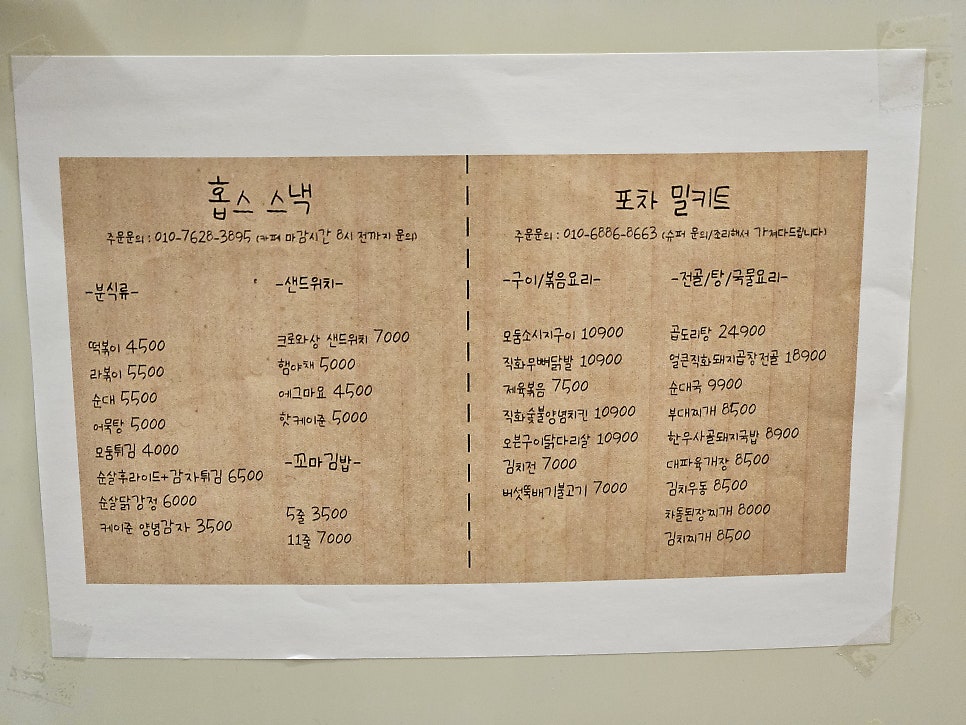 홉스 스낵
주문문의 : 010-7628-3895 (카페 마감시간 8시 전까지 문의)
-분식류-
떡볶이 4500
라볶이 5500
순대 5500
어묵탕 5000
모둠튀김 4000
순살후라이드+감자튀김 6500
순살닭강정 6000
케이준 양념감자 3500
-샌드위치-
크로와상 샌드위치 7000
햄야채 5000
에그마요 4500
핫케이준 5000
-꼬마김밥-
5줄 3500
11줄 7000
포차 밀키트
주문문의 : 010-6886-8663 (슈퍼 문의/조리해서 가져다드립니다)
-구이/볶음요리-
모둠소시지구이 10900
직화무뼈닭발 10900
제육볶음 7500
직화숯불양념치킨 10900
오븐구이닭다리살 10900
김치전 7000
버섯뚝배기불고기 7000
-전골/탕/국물요리-
곱도리탕 24900
얼큰직화돼지곱창전골 18900
순대국 9900
부대찌개 8500
한우사골돼지국밥 8900
대파육개장 8500
김치우동 8500
차돌된장찌개 8000
김치찌개 8500